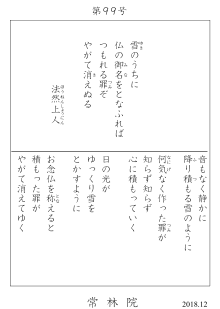 第99号
雪のうちに
仏の御名をとなふれば
つもれる罪ぞ
やがて消えぬる
法然上人
音もなく静かに
降り積もる雪のように
何気なく作った罪が
知らず知らず
心に積もっていく
日の光が
ゆっくり雪を
とかすように
お念仏を称えると
積もった罪が
やがて消えてゆく
常林院
2018.12